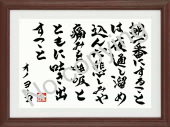 朝一番にすること
は夜通し溜め
込んだ悲しみや
痛みを呼吸と
ともに吐き出
すこと